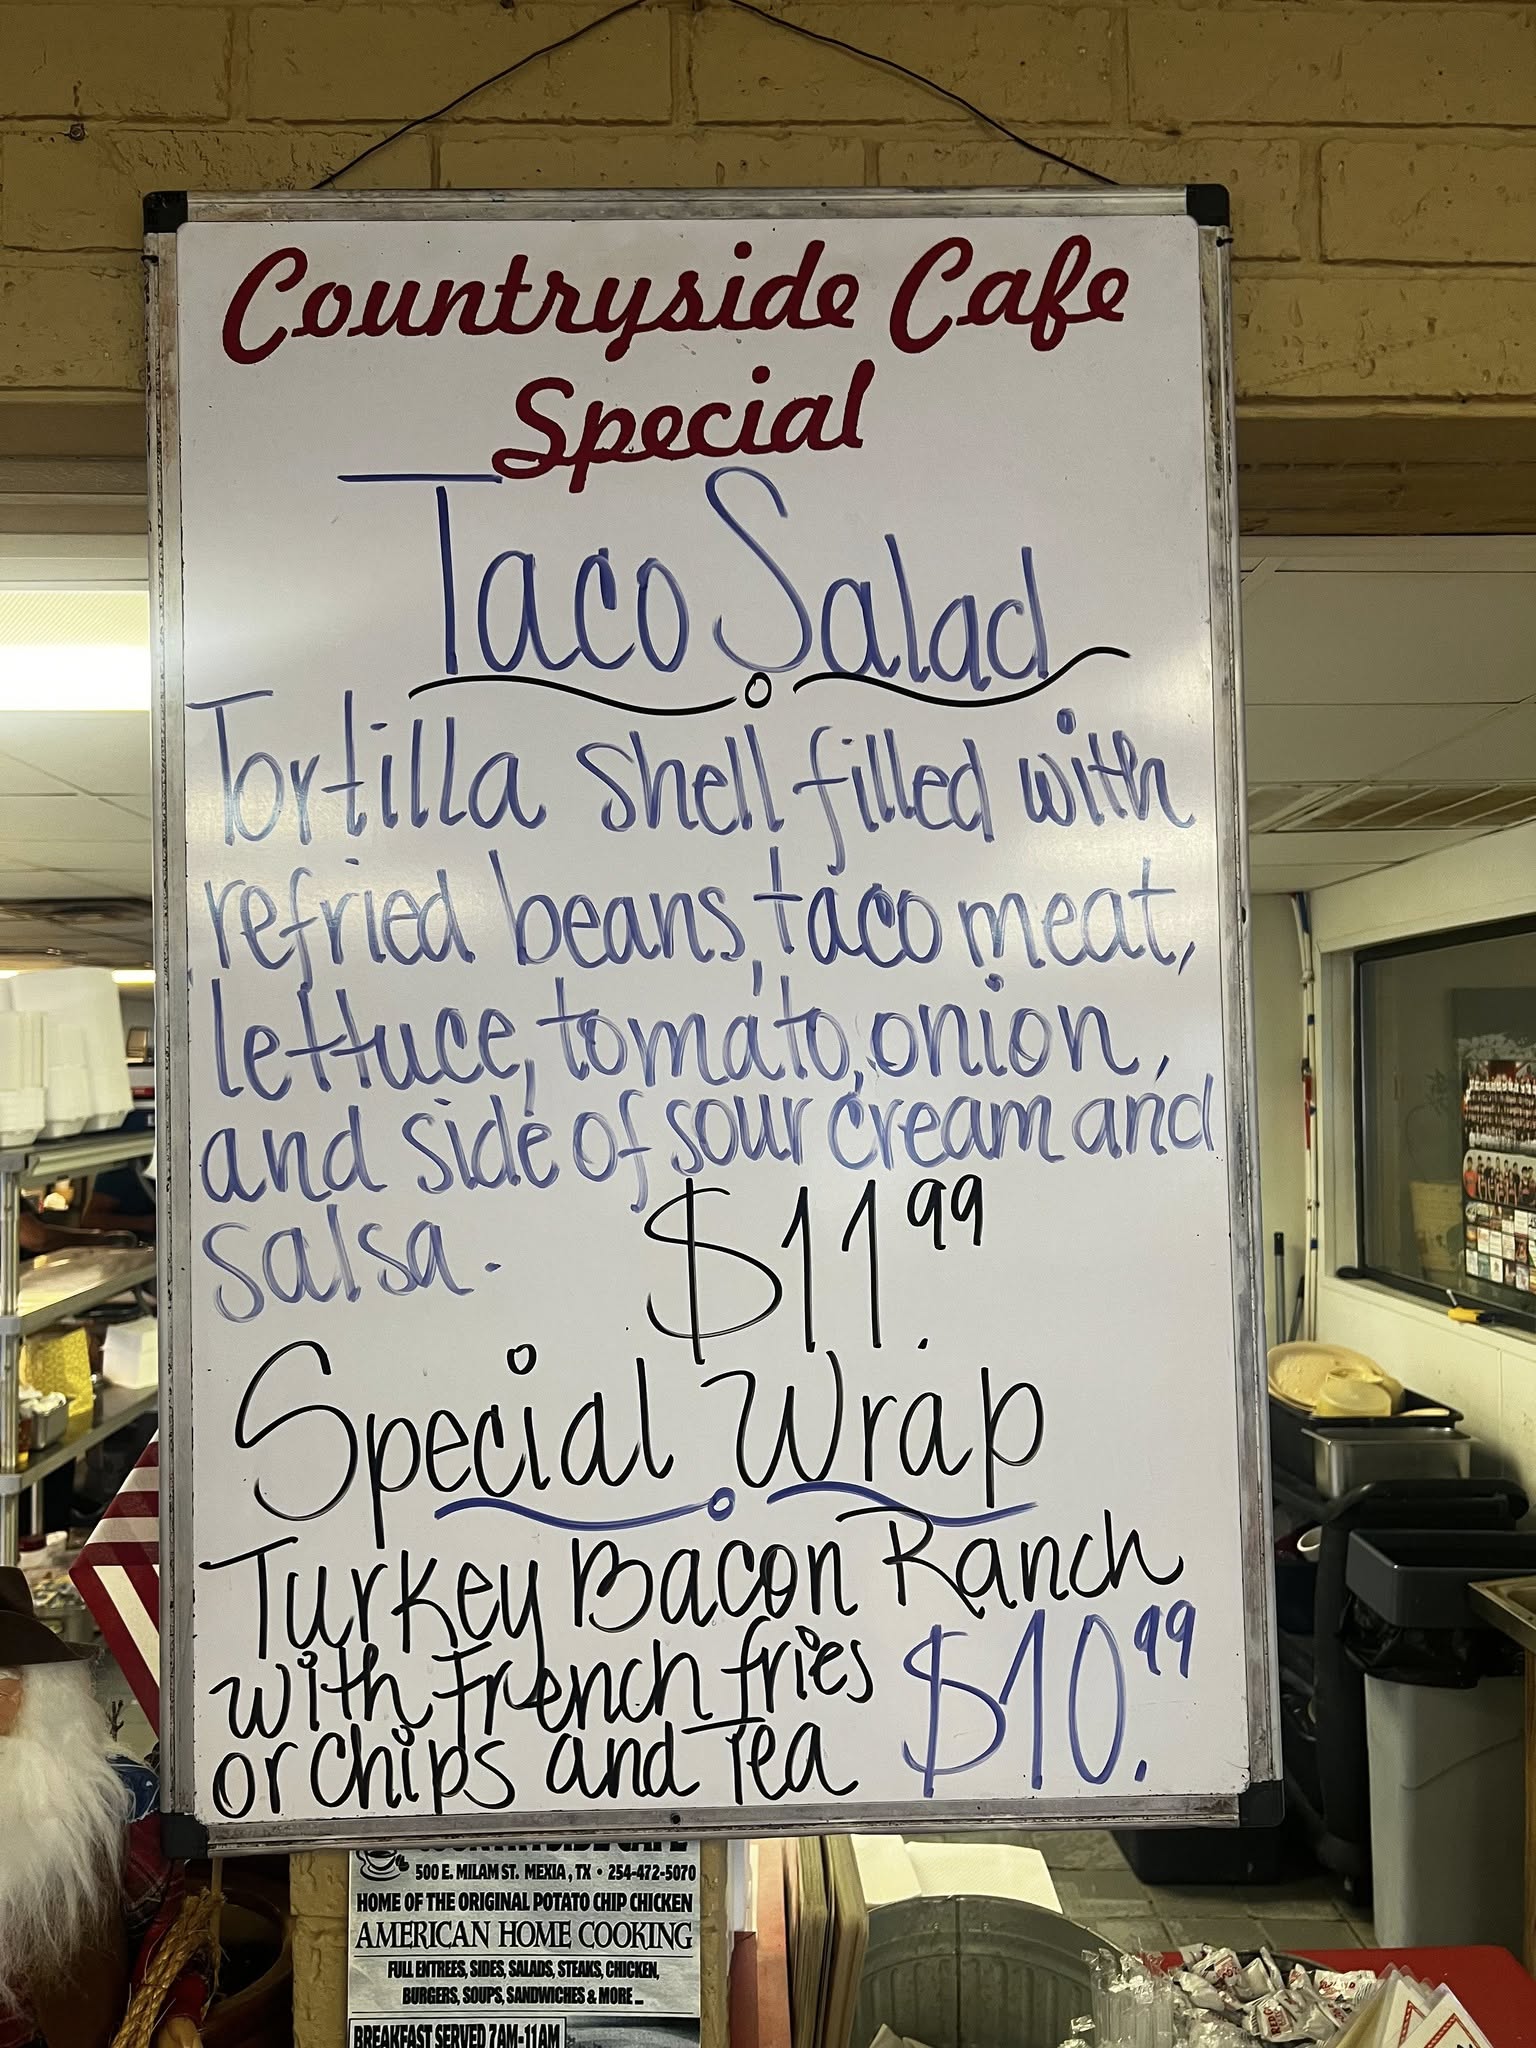 Countryside Cafe
Special
Taco Salad
Tortilla shell filled with
refried beans, taco meat,
lettuce, tomato, onion,
and side of sour cream and
salsa. $11.99
Special Wrap
Turkey Bacon Ranch
with French fries
or chips and Tea $10.99
COUNTRYSIDE CAFE
500 E. MILAM ST. MEXIA, TX • 254-472-5070
HOME OF THE ORIGINAL POTATO CHIP CHICKEN
AMERICAN HOME COOKING
FULL ENTREES, SIDES, SALADS, STEAKS, CHICKEN,
BURGERS, SOUPS, SANDWICHES & MORE...
BREAKFAST SERVED 7AM-11AM